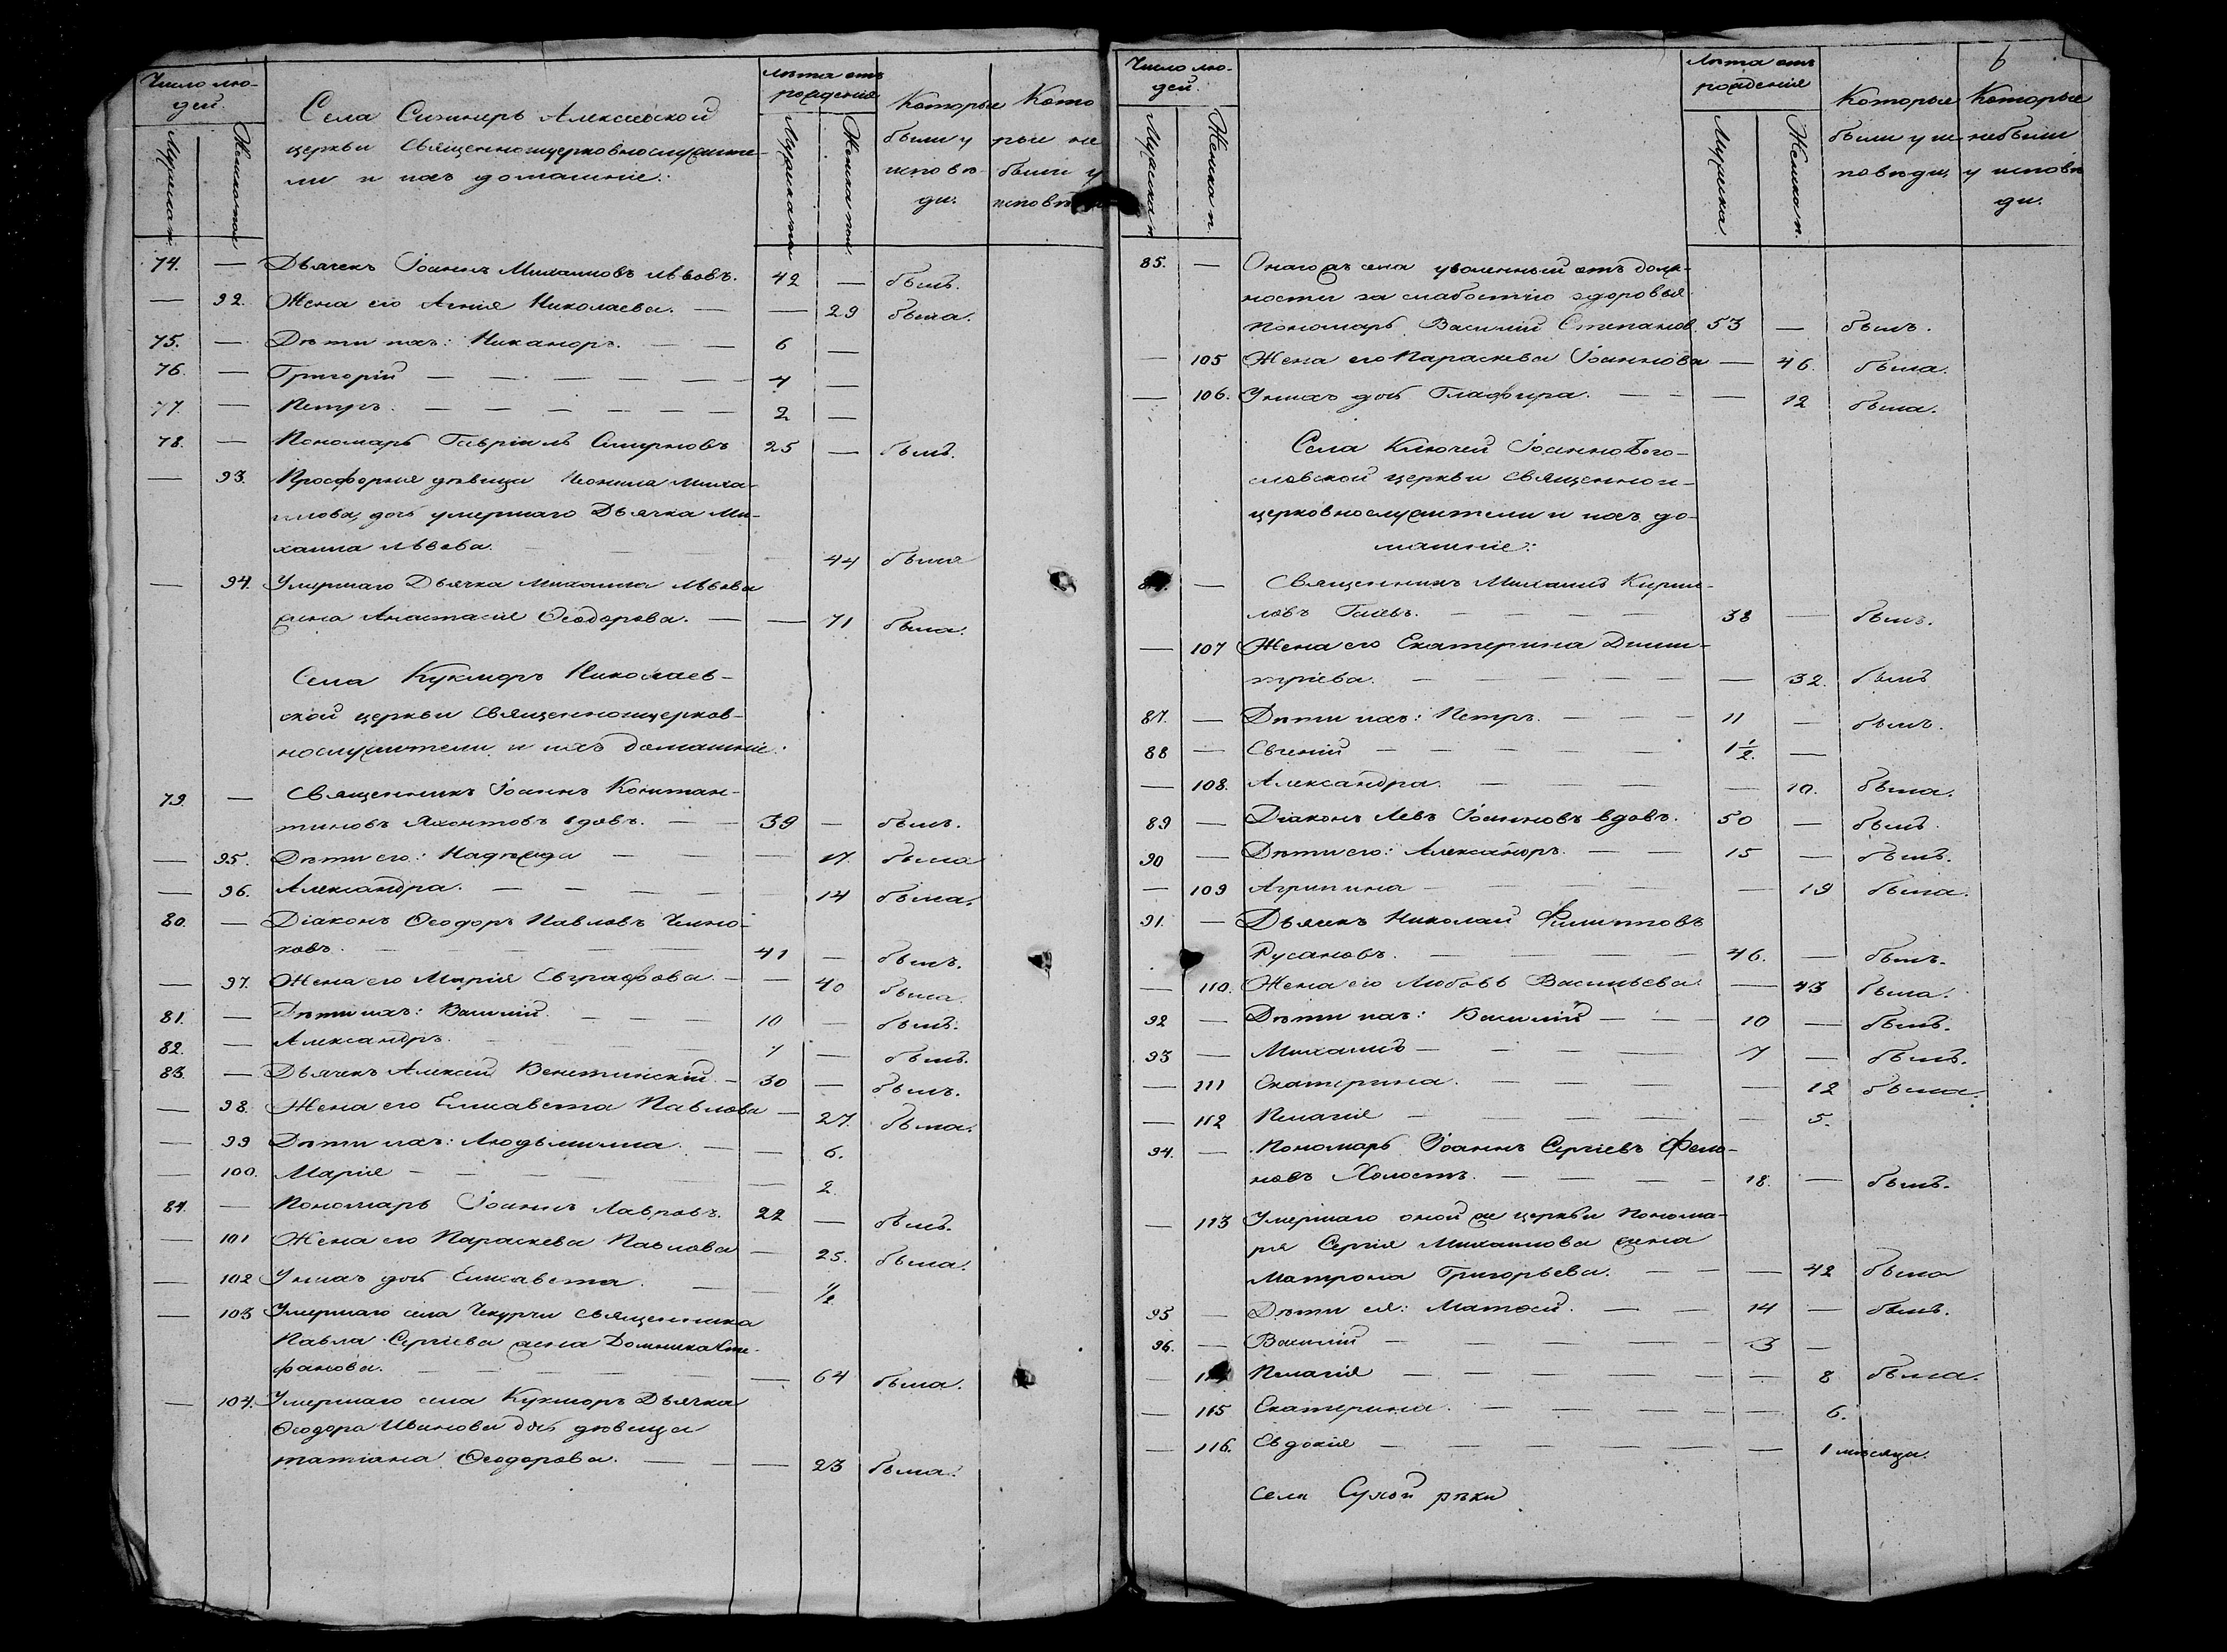 Число лю-
дей.
Мужеска п.
Женска пол.
Села Сизнеръ Алексіевской
церкви священноицерковнослужите-
ли и ихъ домашніе:
лѣта отъ
рожденія
Мужеска пол
Женска пол.
Которые
были у
исповѣ-
ди.
Кото
рые не
были у
исповѣ
74. — Дьячекъ Іоаннъ Михаиловъ Львовъ. 42 — былъ.
— 92. Жена его Агнія Николаева. — — 29 была.
75. — Дѣти ихъ: Никаноръ. — — 6 —
76. — Григорій — — — — — — 4 —
77. — Петръ. — — — — — — 2 —
78. — Пономарь Гавріилъ Смирновъ 25 — былъ.
— 93. Просфорня дѣвица Неонила Миха-
илова, дочь умершаго Дьячка Ми-
хаила Львова. — — — 44 была
— 94. Умершаго Дьячка Михаила Львова
жена Анастасія Ѳеодорова. — — 71 была.
Села Кукморъ Николаев-
ской церкви священноицерков-
нослужители и ихъ домашніе:
79. — Священникъ Іоаннъ Констан-
тиновъ Яхонтовъ вдовъ. — — 39 — былъ.
— 95. Дѣти его: Надежда — — — 17 была
— 96. Александра. — — — — — 14 была.
80. — Діаконъ Ѳеодоръ Павловъ
ховъ. — — — — 41 — былъ.
— 97. Жена его Марія Евграфова. — — 40 была.
81. — Дѣти ихъ: Василій. — — — 10 — былъ.
82. — Александръ. — — — — 7 — былъ.
83. — Дьячекъ Алексій Венетинскій. — 30 — былъ.
— 98. Жена его Елисавета Павлова — 27. была.
— 99 Дѣти ихъ: Людьмилла. — — 6.
— 100. Марія — — — — — — 2.
84. — Пономарь Іоаннъ Лавровъ. 22 — былъ.
— 101 Жена его Параскева Павлова — 25. была.
— 102 У нихъ дочь Елисавета. — — ½
— 103 Умершаго села Чекурчи священника
Павла Сергіева жена Домника Сте-
фанова. — — — — — 64 была.
— 104. Умершаго села Кукморъ Дьячка
Ѳеодора Иванова дочь дѣвица
татіана Ѳеодорова. — — — 23 была.
6
Число лю-
дей.
Мужеска п
Женска п.
Лѣта отъ
рожденія
Мужеска
Женска п.
Которые
были у ис-
повѣди,
Которые
небыли
у исповѣ
ди.
85. — Онагожъ села уволенный отъ долж-
ности за слабостію здоровья
пономарь Василій Степановъ. 53 — былъ.
— 105 Жена его Параскева Іоаннова — 46. была.
— 106. У нихъ дочь Глафира. — — — 12 была.
Села Ключей Іоанно Бого-
словской церкви священнои-
церковнослужители и ихъ до-
машніе:
— Священникъ Михаилъ Кирил-
ловъ — — — — 38 — былъ.
— 107 Жена его Екатерина Дими-
тріева. — — — — — — 32. былъ
87. — Дѣти ихъ: Петръ. — — — 11 — былъ.
88 — Евгеній — — — — — 1½. —
— 108. Александра. — — — — 10. была.
89 — Діаконъ Левъ Іоанновъ вдовъ. 50 — былъ.
90 — Дѣти его: Александръ. — — 15 — былъ.
— 109 Агрипина — — — — — 19 была.
91. — Дьячекъ Николай Филипповъ
Русановъ. — — — — — 46. — былъ.
— 110. Жена его Любовь Васильева. — 43 была.
92 — Дѣти ихъ: Василій — — 10 — былъ.
93 — Михаилъ — — — — — 7 — былъ.
— 111 Екатерина. — — — — — 12 была.
— 112 Пелагія — — — — — — 5.
94. — Пономарь Іоаннъ Сергіевъ
новъ Холостъ. — — — — 18. — былъ.
— 113 Умершаго оной же церкви Понома-
ря Сергія Михаилова жена
Матрона Григорьева. — — — 42 была
95 — Дѣти ея: Матѳей. — — 14 — былъ.
96. — Василій — — — — — 3 —
— Пелагія — — — — — — 8 была.
— 115 Екатерина. — — — — — — 6.
— 116. Евдокія — — — — — — 1 мѣсяца.
села Сухой рѣки